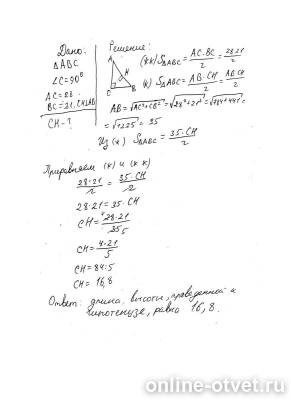 Дано:
ΔABC
∠C=90°
AC=28
BC=21. CH⊥AB
CH-?
Решение:
A
H
C
B
(кк) S ΔABC = AC·BC/2 = 28·21/2
(к) S ΔABC = AB·CH/2 = AB·CH/2
AB=√AC²+CB² = √28²+21² = √784+441 =
= √1225 = 35
Из (к) S ΔABC = 35·CH/2
Приравняем (к) и (кк)
28·21/2 = 35·CH/2
28·21 = 35·CH
CH = 28·21/35 4 5
CH = 4·21/5
CH = 84:5
CH = 16,8
Ответ: длина высоты, проведенной к
гипотенузе, равна 16,8.
online-otvet.ru